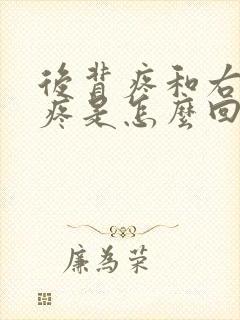 後背疼和右
疼是怎麼回
廉為荣